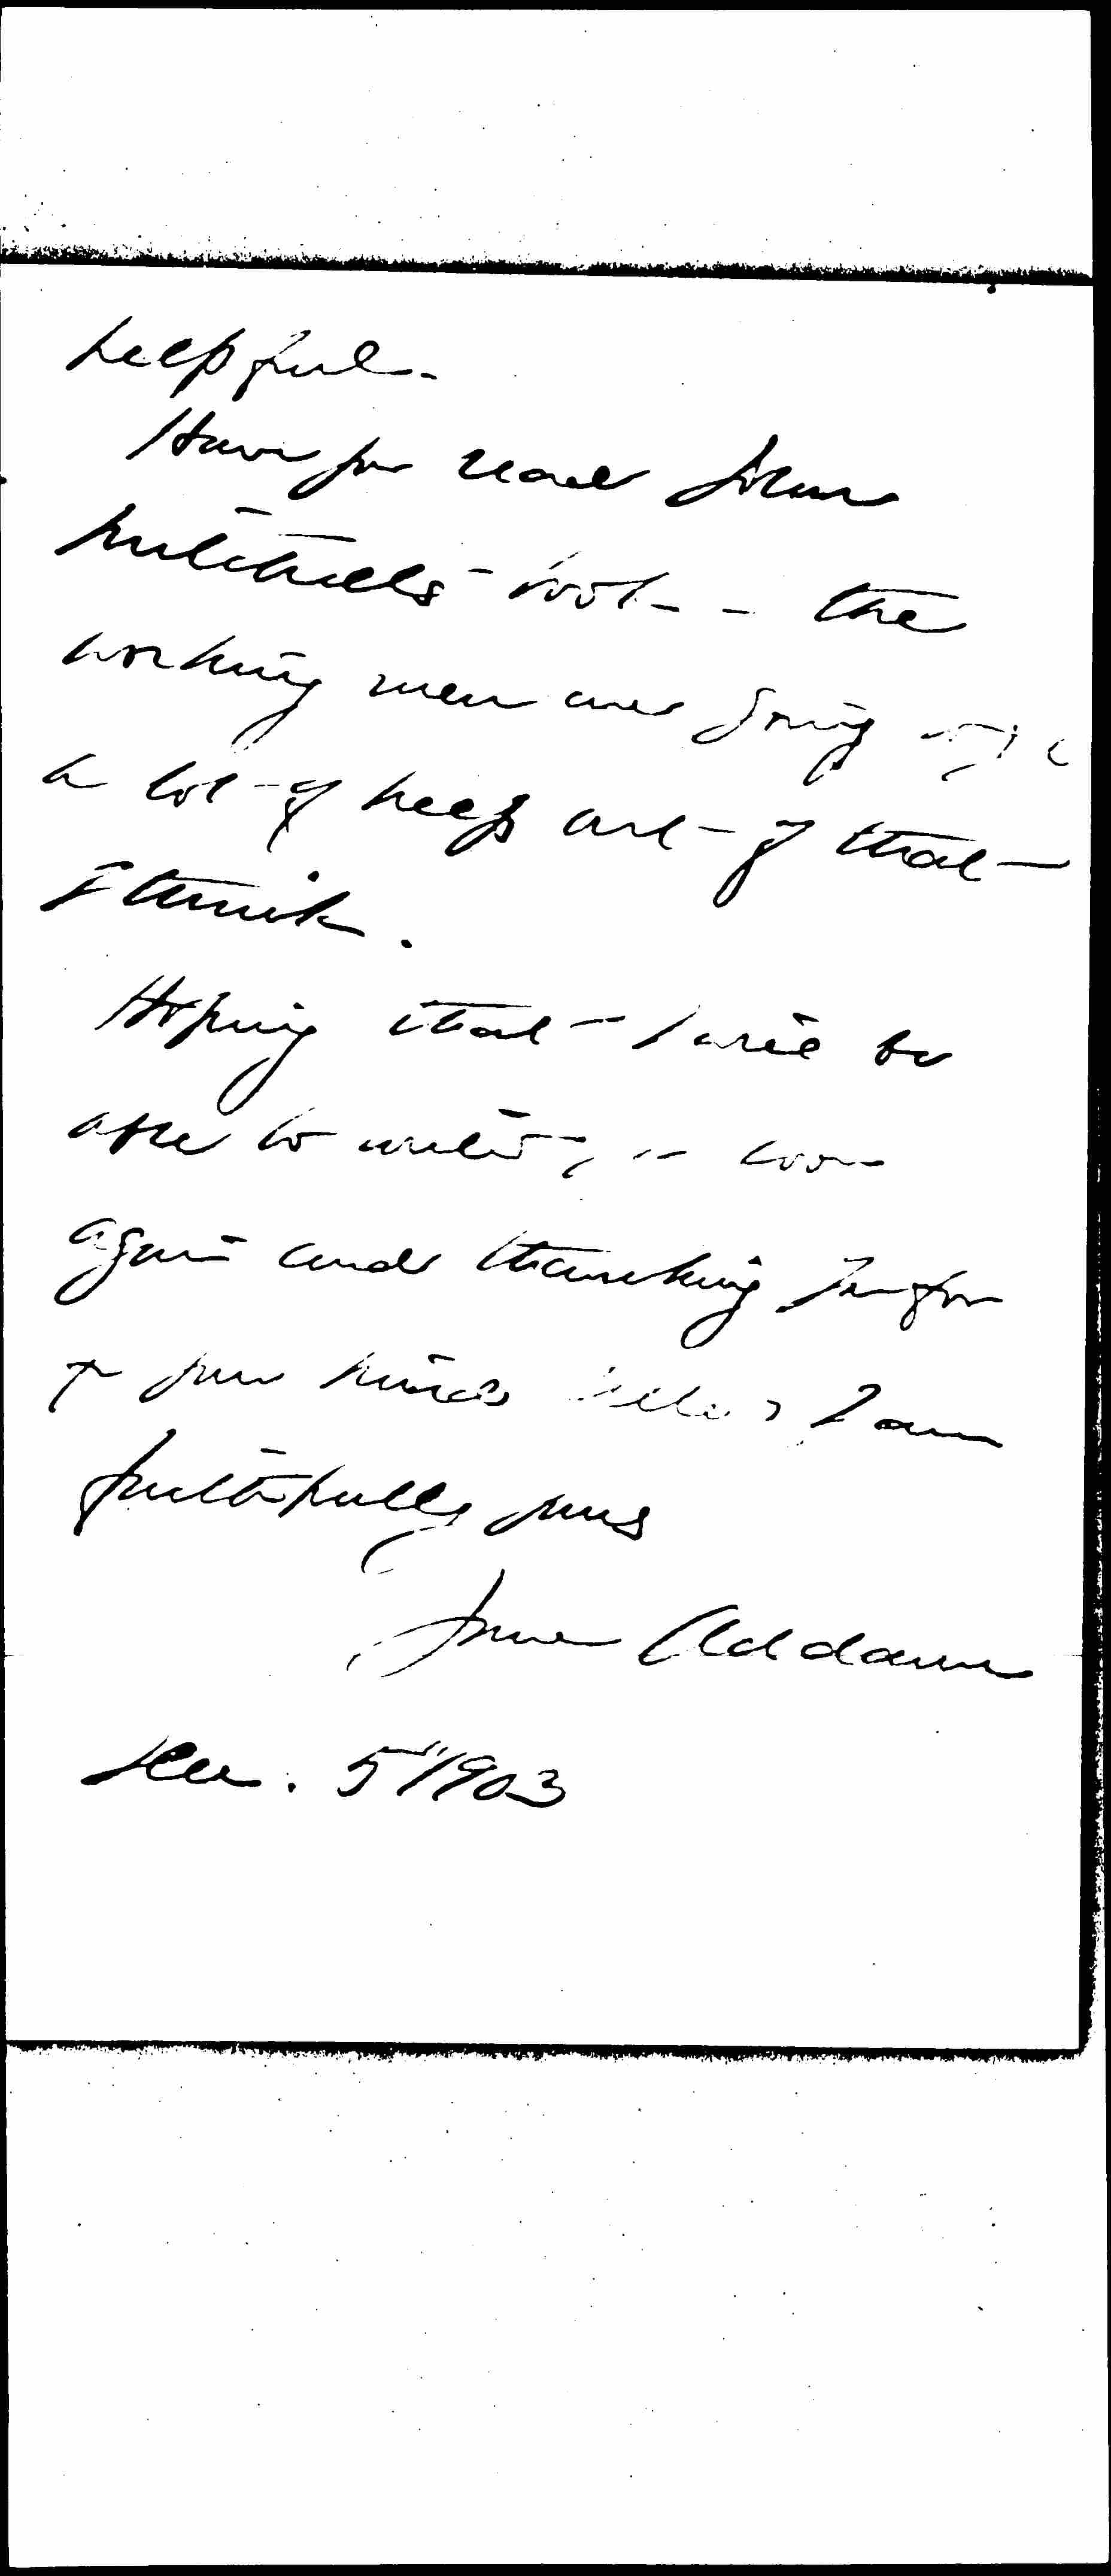 helpful.
Have you read John
Mitchell's book - the
working men are going to get
a lot of help out of that
I think.
Hoping that I will be
able to write you soon
again and thanking you for
your kind letter I am
faithfully yours
Jane Addams
Dec. 5" 1903